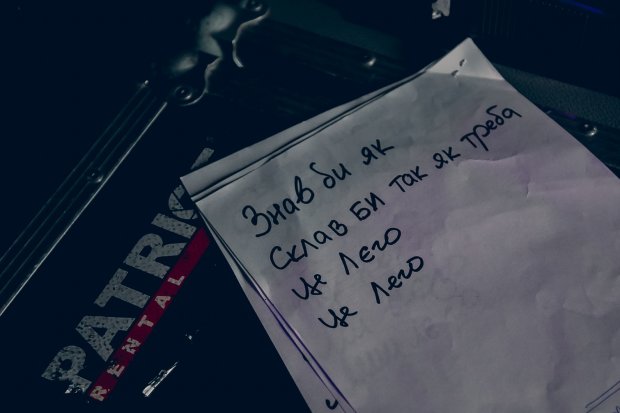 Знав би як
Склав би так як треба
Це лего
Це лего
PATRIC
RENTAL